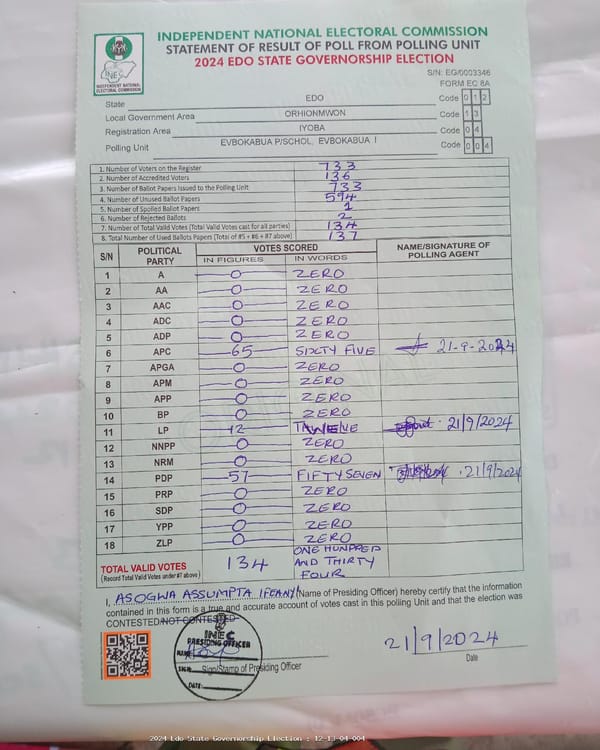 INDEPENDENT NATIONAL ELECTORAL COMMISSION
STATEMENT OF RESULT OF POLL FROM POLLING UNIT
2024 EDO STATE GOVERNORSHIP ELECTION
INEC
INDEPENDENT NATIONAL
ELECTORAL COMMISSION
S/N: EG/0003346
FORM EC 8A
State EDO Code 0 1 2
Local Government Area ORHIONMWON Code 1 3
Registration Area IYOBA Code 0 4
Polling Unit EVBOKABUA P/SCHOL, EVBOKABUA I Code 0 0 4
1. Number of Voters on the Register 733
2. Number of Accredited Voters 136
3. Number of Ballot Papers Issued to the Polling Unit 733
4. Number of Unused Ballot Papers 594
5. Number of Spoiled Ballot Papers 1
6. Number of Rejected Ballots 2
7. Number of Total Valid Votes (Total Valid Votes cast for all parties) 134
8. Total Number of Used Ballots Papers (Total of #5 + #6 + #7 above) 137
S/N POLITICAL PARTY VOTES SCORED NAME/SIGNATURE OF POLLING AGENT
IN FIGURES IN WORDS
1 A 0 ZERO
2 AA 0 ZERO
3 AAC 0 ZERO
4 ADC 0 ZERO
5 ADP 0 ZERO
6 APC 65 SIXTY FIVE 21-9-2024
7 APGA 0 ZERO
8 APM 0 ZERO
9 APP 0 ZERO
10 BP 0 ZERO
11 LP 12 TWELVE 21/9/2024
12 NNPP 0 ZERO
13 NRM 0 ZERO
14 PDP 57 FIFTY SEVEN 21/9/2024
15 PRP 0 ZERO
16 SDP 0 ZERO
17 YPP 0 ZERO
18 ZLP 0 ZERO
TOTAL VALID VOTES 134 ONE HUNDRED
(Record Total Valid Votes under #7 above) AND THIRTY
FOUR
I, ASOGWA ASSUMPTA IFEANYI (Name of Presiding Officer) hereby certify that the information
contained in this form is a true and accurate account of votes cast in this polling Unit and that the election was
CONTESTED/NOT CONTESTED
INEC
PRESIDING OFFICER
NAME:
SIGN:
DATE:
Sign/Stamp of Presiding Officer
21/9/2024
Date
2024 Edo State Governorship Election : 12-13-04-004